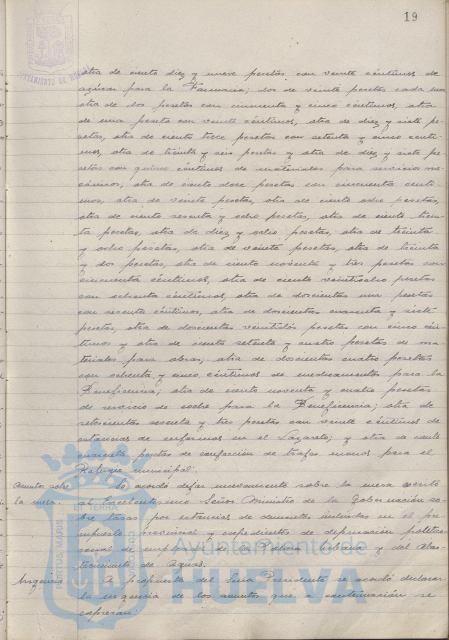 19
otra de ciento diez y nueve pesetas con veinte céntimos de
azúcar para la Farmacia; dos de veinte pesetas cada una
otra de dos pesetas con cincuenta y cinco céntimos, otra
de una peseta con veinte céntimos, otra de diez y siete pe-
setas, otra de ciento trece pesetas con setenta y cinco cénti-
mos, otra de treinta y seis pesetas y otra de diez y siete pe-
setas con quince céntimos de materiales para servicios me-
cánicos, otra de ciento doce pesetas con cincuenta cénti-
mos, otra de veinte pesetas, otra de ciento ocho pesetas,
otra de ciento sesenta y ocho pesetas, otra de ciento trein-
ta pesetas, otra de diez y ocho pesetas, otra de treinta
y ocho pesetas, otra de veinte pesetas, otra de treinta
y dos pesetas, otra de ciento noventa y tres pesetas con
cincuenta céntimos, otra de ciento veintiocho pesetas
con ochenta céntimos, otra de doscientas una pesetas
con sesenta céntimos, otra de doscientas cuarenta y siete
pesetas, otra de doscientas veintidós pesetas con cinco cén-
timos y otra de ciento setenta y cuatro pesetas de ma-
teriales para obras, otra de doscientas cuatro pesetas
con ochenta y cinco céntimos de medicamentos para la
Beneficencia; otra de ciento noventa y cuatro pesetas
de servicio de coche para la Beneficencia; otra de
setecientas sesenta y tres pesetas con veinte céntimos de
estancias de enfermos en el Lazareto; y otra de
cuarenta pesetas de confección de trajes para el
Refugio municipal.
Asunto sobre Se acordó dejar nuevamente sobre la mesa escrito
la mesa. al Excelentísimo Señor Ministro de la Gobernación so-
bre tasas por estancias de dementes incluidas en el pre-
supuesto provincial y expedientes de depuración político
social de empleados de la Policía Urbana y del Abas-
tecimiento de Aguas.
Urgencia A propuesta del Señor Presidente se acordó declarar
la urgencia de los asuntos que a continuación se
expresan:
Ayuntamiento de
HUELVA